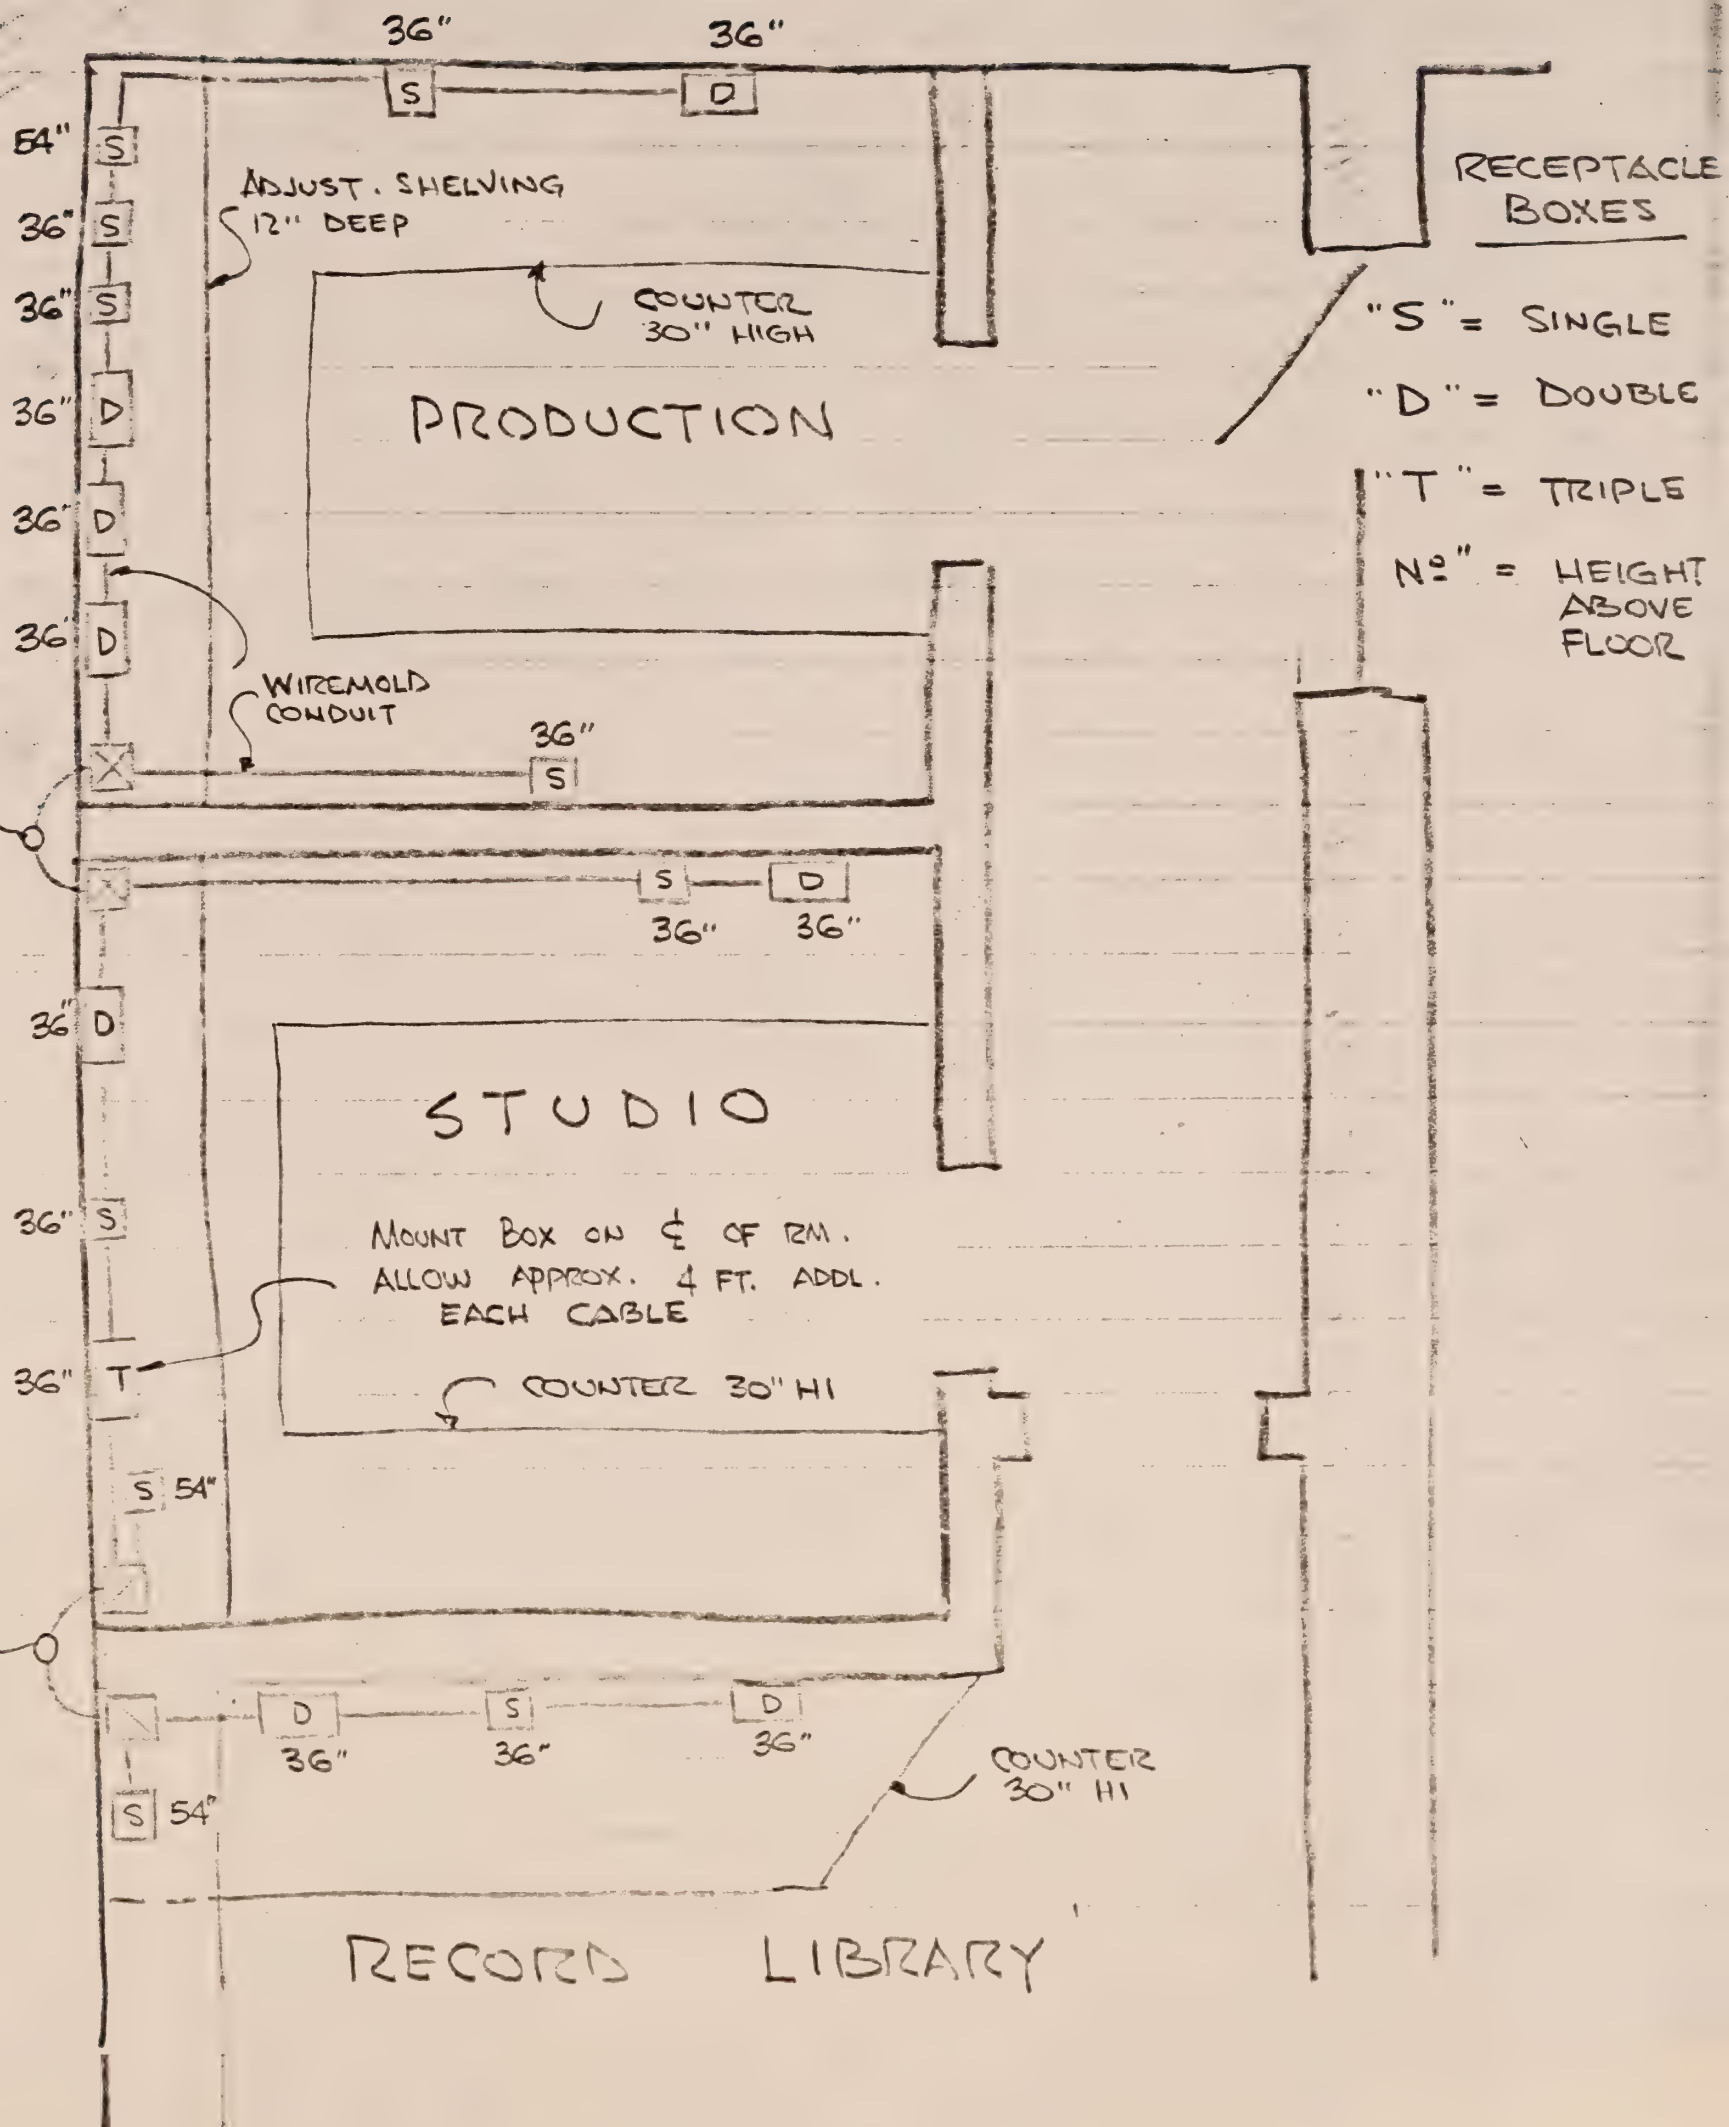 36" 36"
S D
54" S
36" S
36" S
36" D
36" D
36" D
ADJUST. SHELVING
12" DEEP
COUNTER
30" HIGH
PRODUCTION
WIREMOLD
CONDUIT
36"
S
RECEPTACLE
BOXES
"S" = SINGLE
"D" = DOUBLE
"T" = TRIPLE
Nº" = HEIGHT
ABOVE
FLOOR
S D
36" 36"
36" D
STUDIO
36" S
MOUNT BOX ON ℄ OF RM.
ALLOW APPROX. 4 FT. ADDL.
EACH CABLE
36" T
COUNTER 30" HI
S 54"
D S D
36" 36" 36"
S 54"
COUNTER
30" HI
RECORD LIBRARY